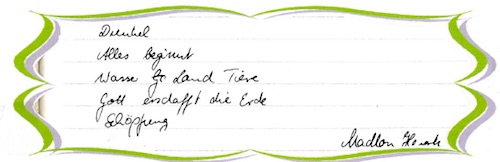 Dunkel
Alles beginnt
Wasser Land Tiere
Gott erschafft die Erde
Schöpfung
Madlon